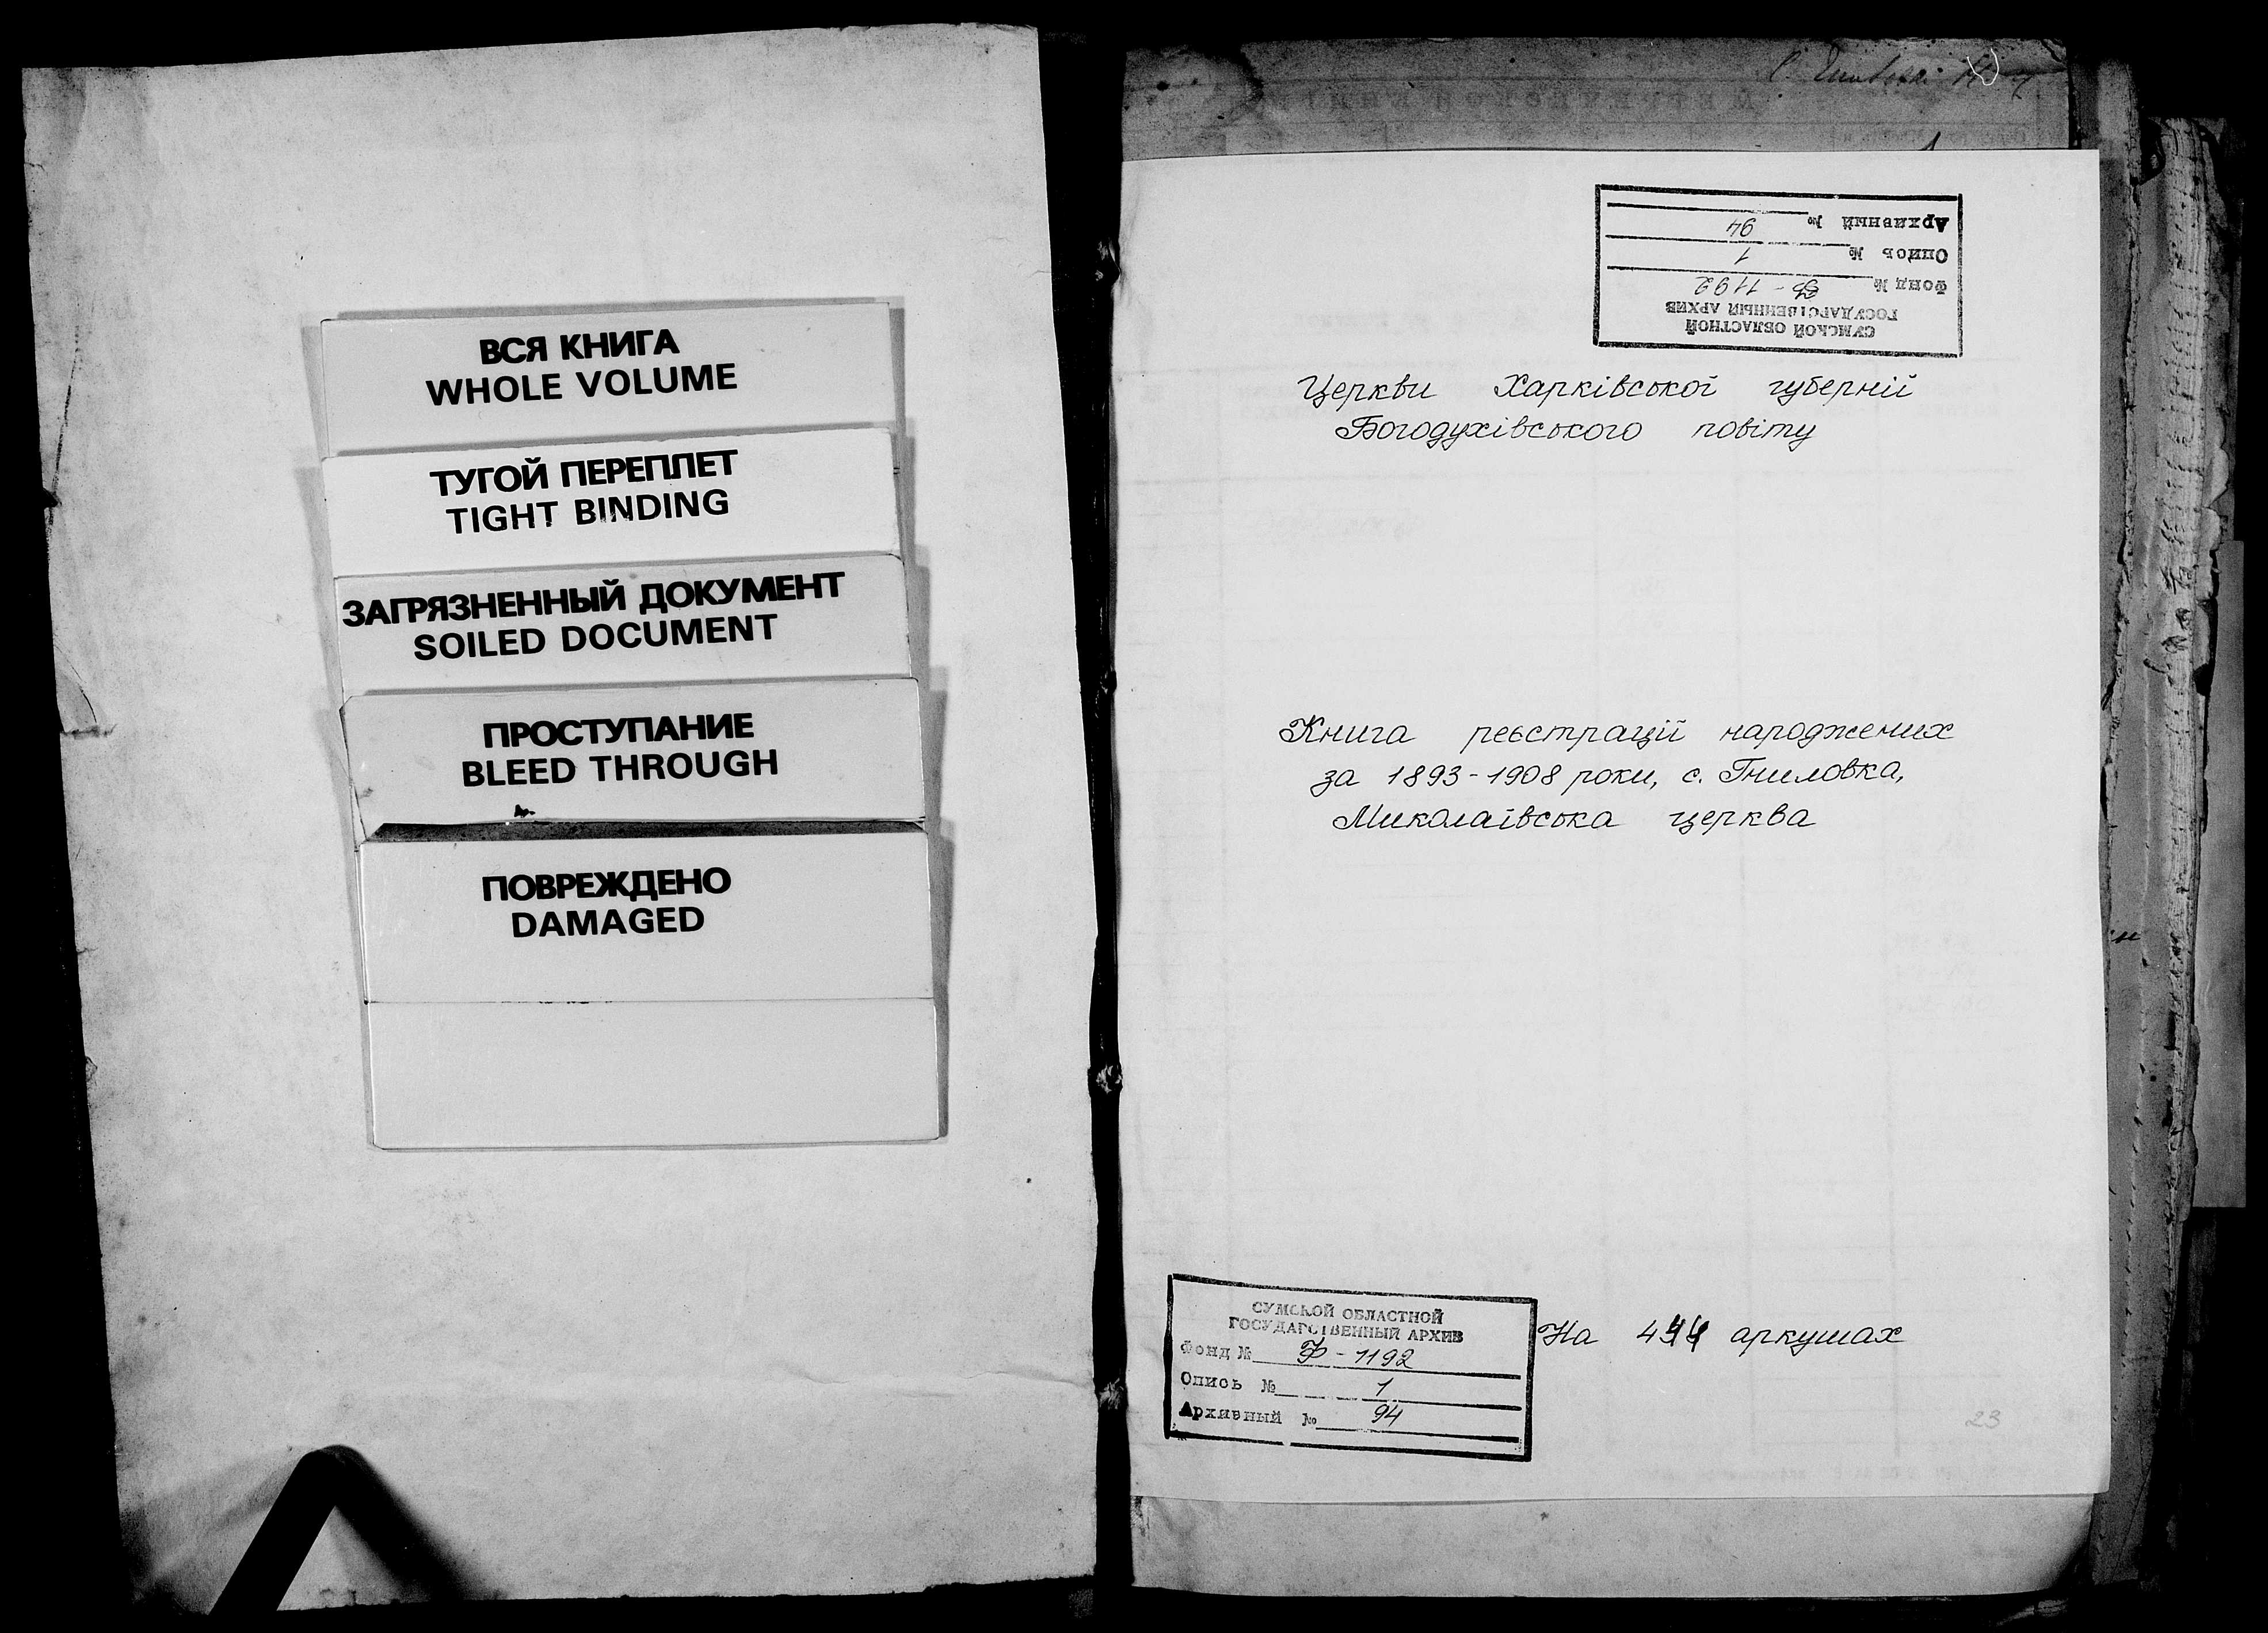 ВСЯ КНИГА
WHOLE VOLUME
ТУГОЙ ПЕРЕПЛЕТ
TIGHT BINDING
ЗАГРЯЗНЕННЫЙ ДОКУМЕНТ
SOILED DOCUMENT
ПРОСТУПАНИЕ
BLEED THROUGH
ПОВРЕЖДЕНО
DAMAGED
СУМСКОЙ ОБЛАСТНОЙ
ГОСУДАРСТВЕННЫЙ АРХИВ
Фонд № Ф-1192
Опись № 1
Архивный № 94
Церкви Харківської губернії
Богодухівського повіту
Книга реєстрації народжених
за 1893-1908 роки, с. Гниловка,
Миколаївська церква
СУМСКОЙ ОБЛАСТНОЙ
ГОСУДАРСТВЕННЫЙ АРХИВ
Фонд № Ф-1192
Опись № 1
Архивный № 94
На аркушах
23